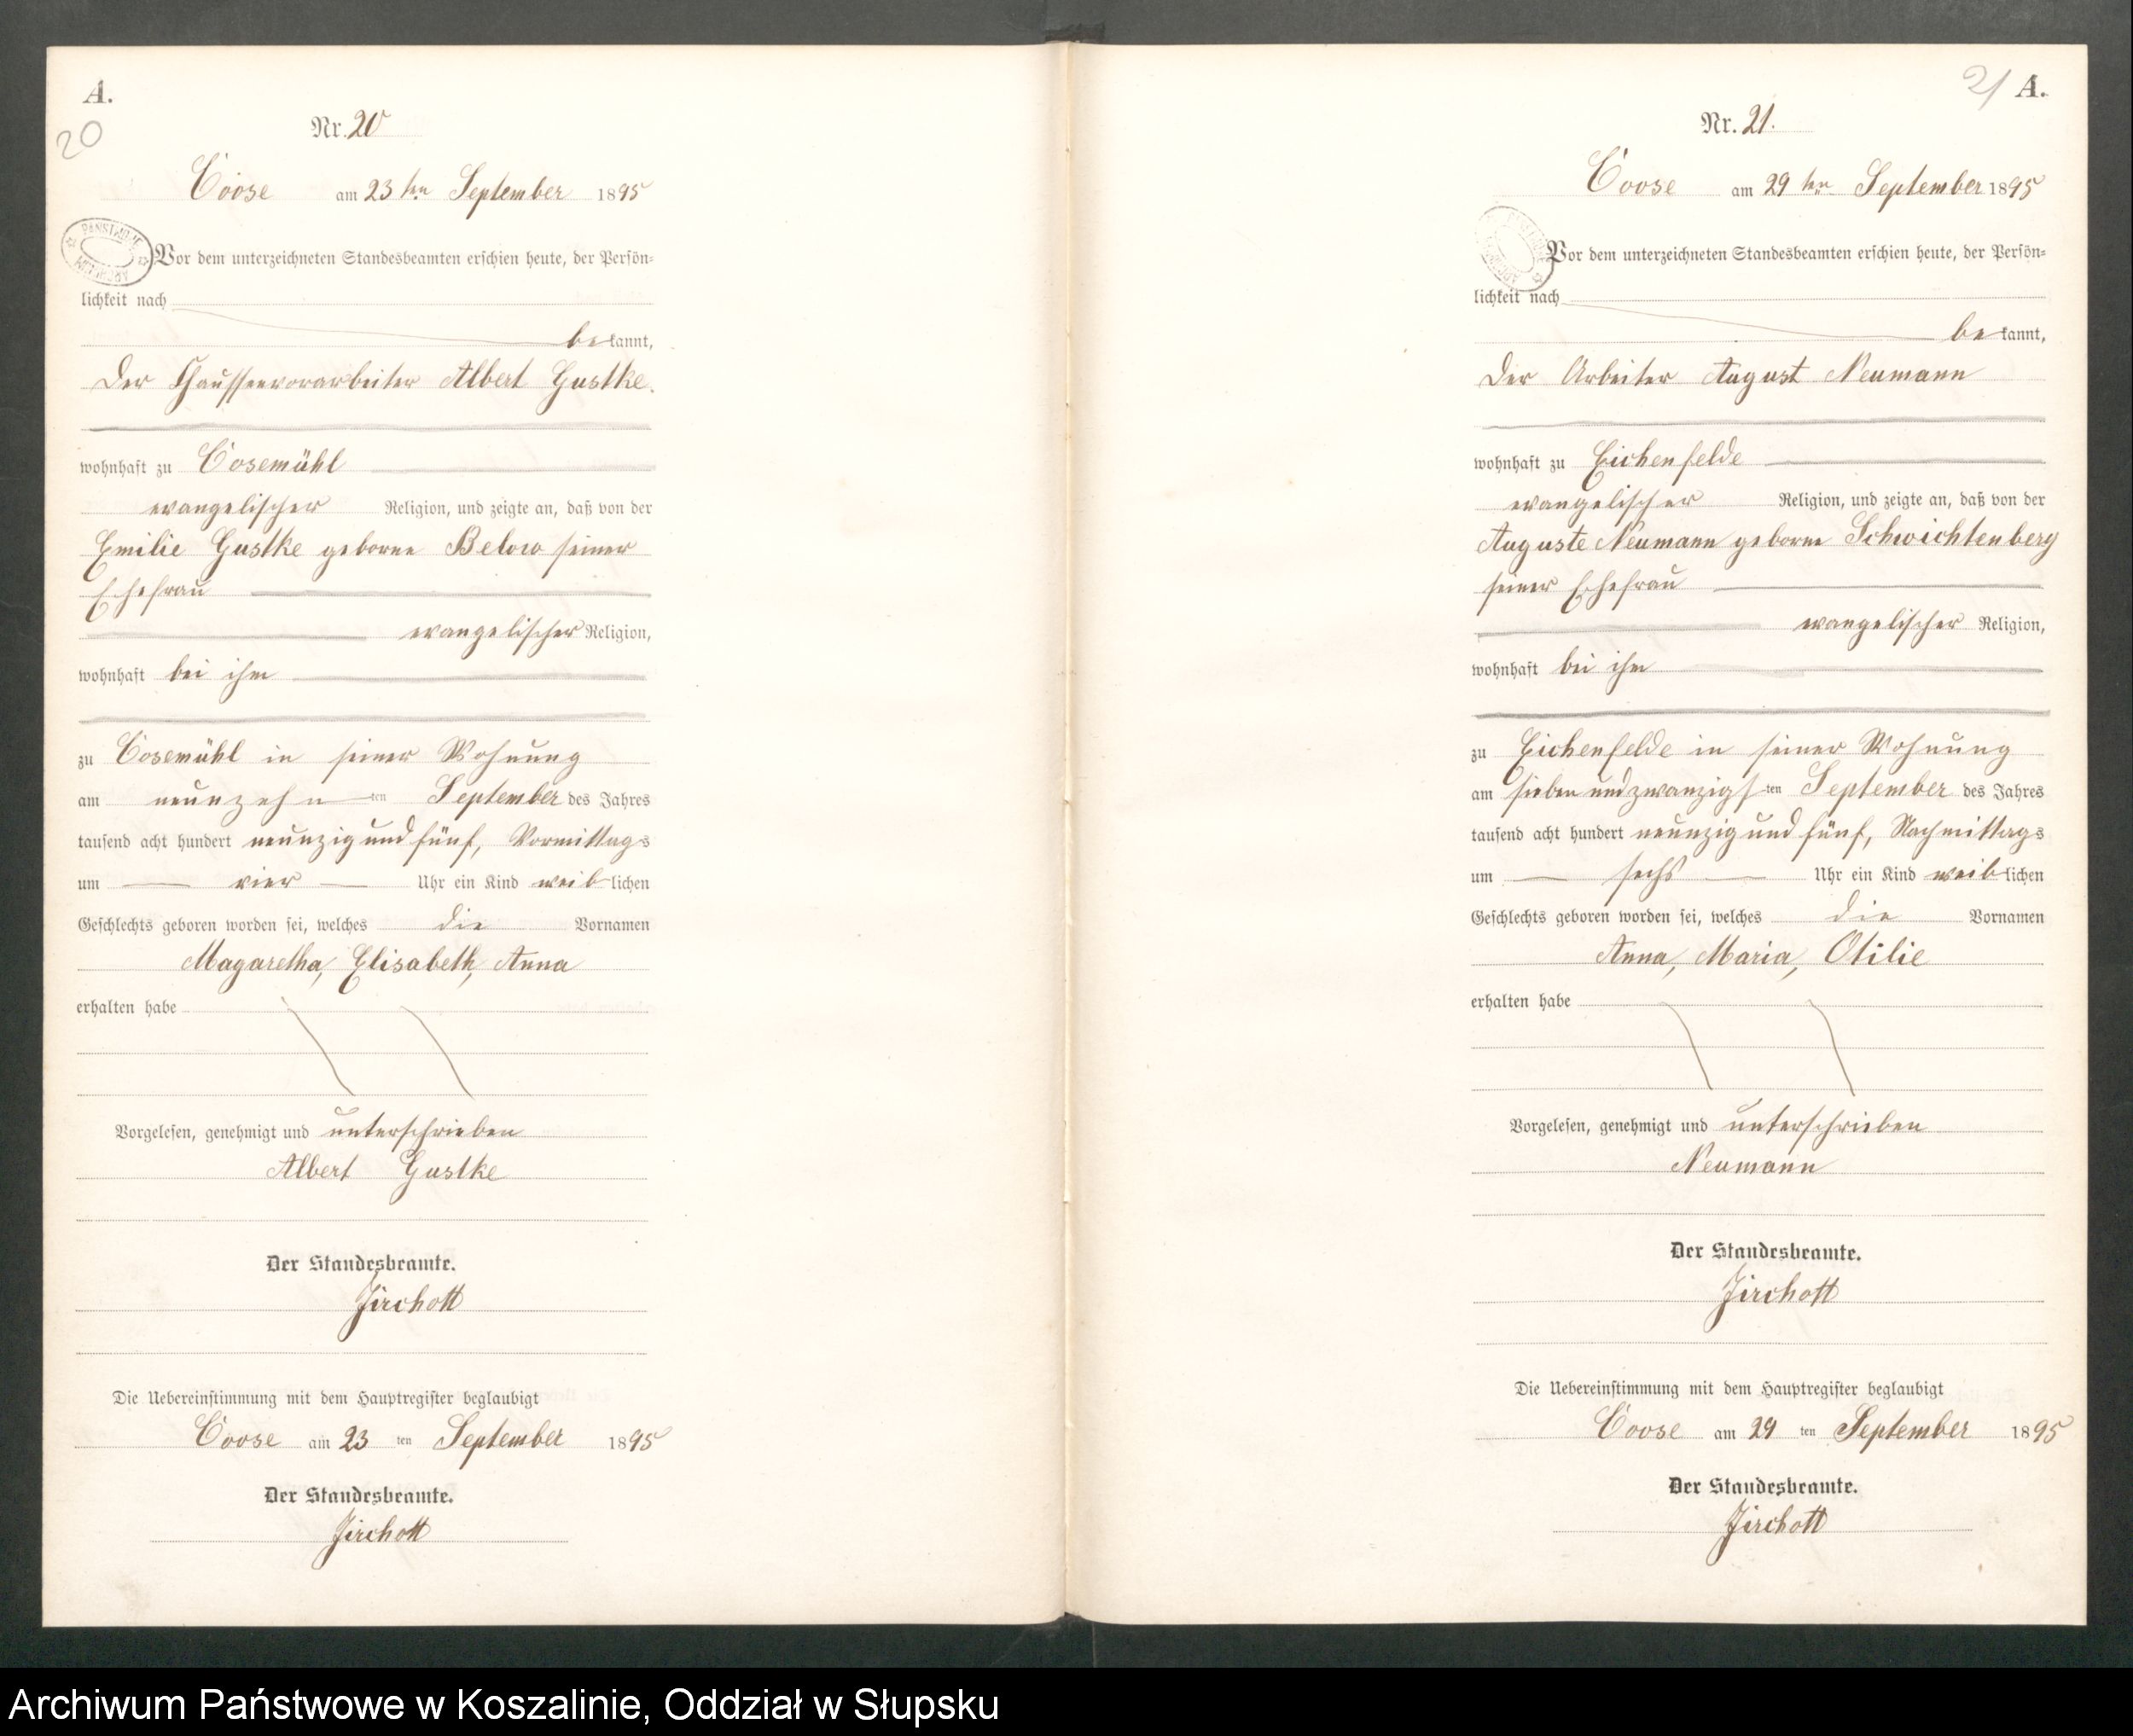 A.
20
Nr. 20
Coose am 23 ten September 1895
Vor dem unterzeichneten Standesbeamten erschien heute, der Persön-
lichkeit nach
be kannt,
der Chausseevorarbeiter Albert Gustke.
wohnhaft zu Cosemühl
evangelischer Religion, und zeigte an, daß von der
Emilie Gustke geborne Below seiner
Ehefrau
evangelischer Religion,
wohnhaft bei ihm
zu Cosemühl in seiner Wohnung
am neunzehn ten September des Jahres
tausend acht hundert neunzig und fünf, Vormittags
um vier Uhr ein Kind weib lichen
Geschlechts geboren worden sei, welches die Vornamen
Magaretha, Elisabeth, Anna
erhalten habe
Vorgelesen, genehmigt und unterschrieben
Albert Gustke
Der Standesbeamte.
Jirchott
Die Uebereinstimmung mit dem Hauptregister beglaubigt
Coose am 23 ten September 1895
Der Standesbeamte.
Jirchott
21 A.
Nr. 21.
Coose am 29 ten September 1895
Vor dem unterzeichneten Standesbeamten erschien heute, der Persön-
lichkeit nach
be kannt,
der Arbeiter August Neumann
wohnhaft zu Eichenfelde
evangelischer Religion, und zeigte an, daß von der
Auguste Neumann geborne Schwichtenberg
seiner Ehefrau
evangelischer Religion,
wohnhaft bei ihm
zu Eichenfelde in seiner Wohnung
am sieben und zwanzigs ten September des Jahres
tausend acht hundert neunzig und fünf, Nachmittags
um sechs Uhr ein Kind weib lichen
Geschlechts geboren worden sei, welches die Vornamen
Anna, Maria, Otilie
erhalten habe
Vorgelesen, genehmigt und unterschrieben
Neumann
Der Standesbeamte.
Jirchott
Die Uebereinstimmung mit dem Hauptregister beglaubigt
Coose am 29 ten September 1895
Der Standesbeamte.
Jirchott
Archiwum Państwowe w Koszalinie, Oddział w Słupsku